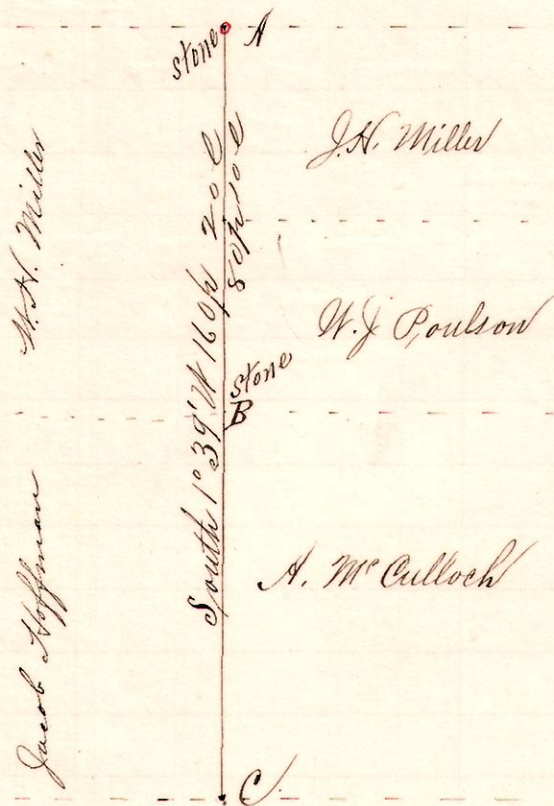 stone A
J. H. Miller
W. H. Miller
South 1° 39' W 160p 20l
80p 10l
W. J. Poulson
stone
B
Jacob Hoffman
A. McCulloch
C.